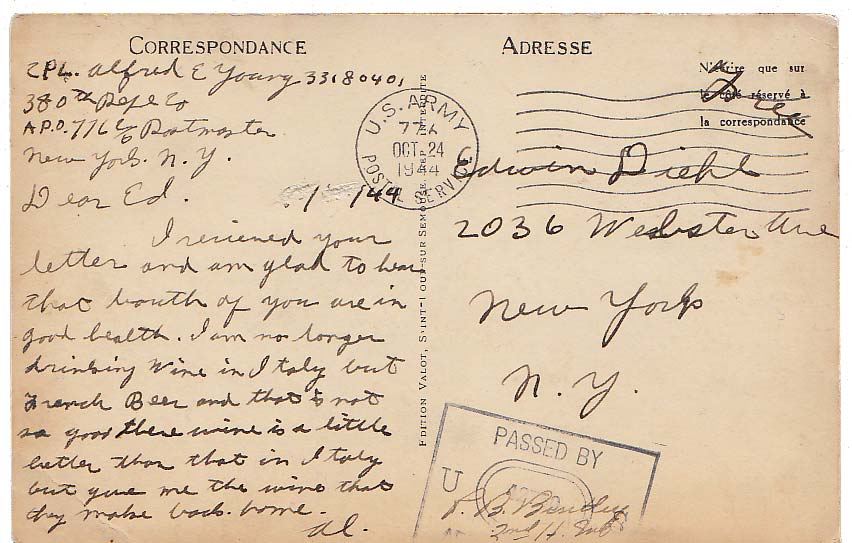 CORRESPONDANCE
CPL. Alfred E Young 33180401
380th Repl Co
A.P.O. 776 c/o Postmaster
New York. N. Y.
Dear Ed.
44
I recieved your
letter and am glad to hear
that bouth of you are in
good health. I am no longer
drinking Wine in Italy but
French Beer and that is not
so good there wine is a little
better than that in Italy
but give me the wine that
they make back home.
Al.
EDITION VALOT, SAINT-LOUP-SUR-SEMOUSE. REP. INTERDITE
U.S. ARMY
POSTAL SERVICE
OCT 24
1944
ADRESSE
N'écrire que sur
le côté réservé à
la correspondance
Free
Edwin Diehl
2036 Webster Ave
New York
N. Y.
PASSED BY
U
2nd Lt. Inf